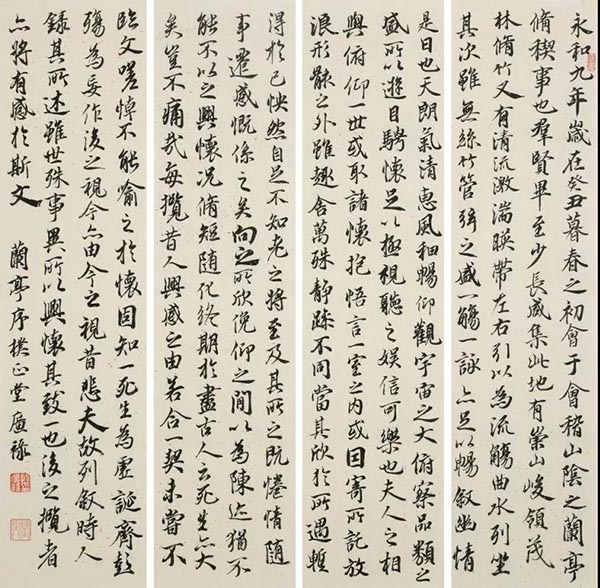 永和九年歲在癸丑暮春之初會于會稽山陰之蘭亭
脩稧事也羣賢畢至少長咸集此地有崇山峻領茂
林脩竹又有清流激湍暎帶左右引以為流觴曲水列坐
其次雖無絲竹管弦之盛一觴一詠亦足以暢敘幽情
是日也天朗氣清惠風和暢仰觀宇宙之大俯察品類之
盛所以遊目騁懷足以極視聽之娛信可樂也夫人之相
與俯仰一世或取諸懷抱悟言一室之內或因寄所託放
浪形骸之外雖趣舍萬殊靜躁不同當其欣於所遇蹔
得於己怏然自足不知老之將至及其所之既惓情隨
事遷感慨係之矣向之所欣俛仰之間以為陳迹猶不
能不以之興懷況脩短隨化終期於盡古人云死生亦大
矣豈不痛哉每攬昔人興感之由若合一契未嘗不
臨文嗟悼不能喻之於懷固知一死生為虛誕齊彭
殤為妄作後之視今亦由今之視昔悲夫故列敘時人
錄其所述雖世殊事異所以興懷其致一也後之攬者
亦將有感於斯文 蘭亭序 正堂